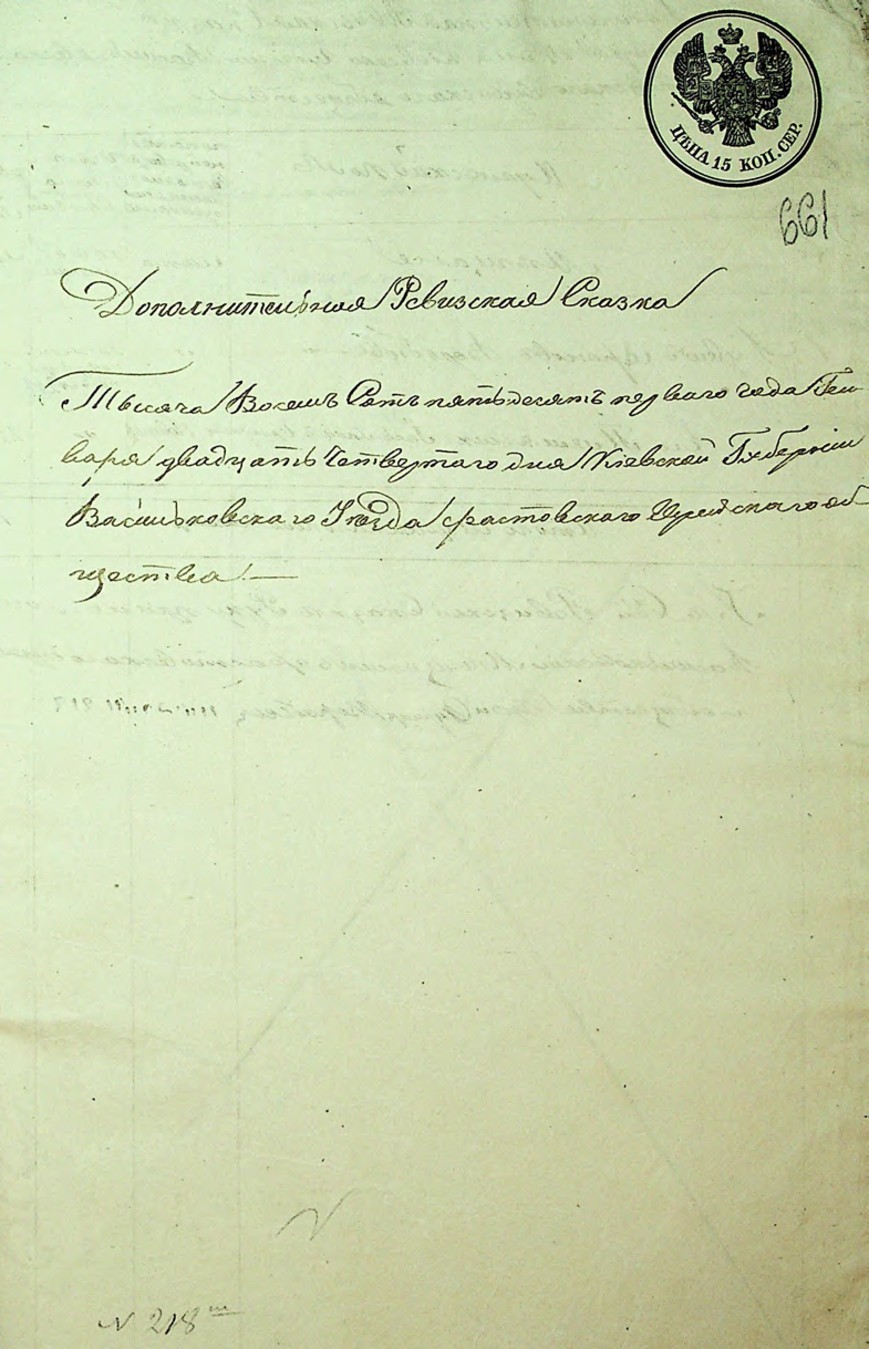 ЦѢНА 15 КОП. СЕР.
661
Дополнительная Ревизская Сказка
Тысяча Восемъ Сотъ пятьдесятъ перваго года Ген
варя двадцать Четвертаго дня Кіевской Губерніи
Васильковскаго Уѣзда фастовскаго Еврейскаго об
щества.—
N 218